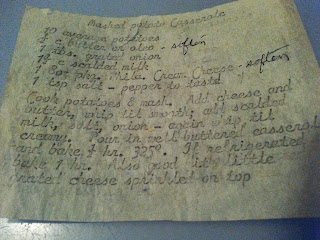 Mashed potato Casserole
10 average potatoes
1 c. butter or oleo - soften
1 tbs. grated onion
1½ c scalded milk
1 8oz pkg. Phila. Cream Cheese - soften
1 tsp salt - pepper to taste
Cook potatoes & mash. Add cheese and
butter, whip til smooth; add scalded
milk, salt, onion - again whip til
creamy. Pour in well buttered casserole
and bake 1 hr. 325° If refrigerated
bake 1 hr. Also good with little
grated cheese sprinkled on top